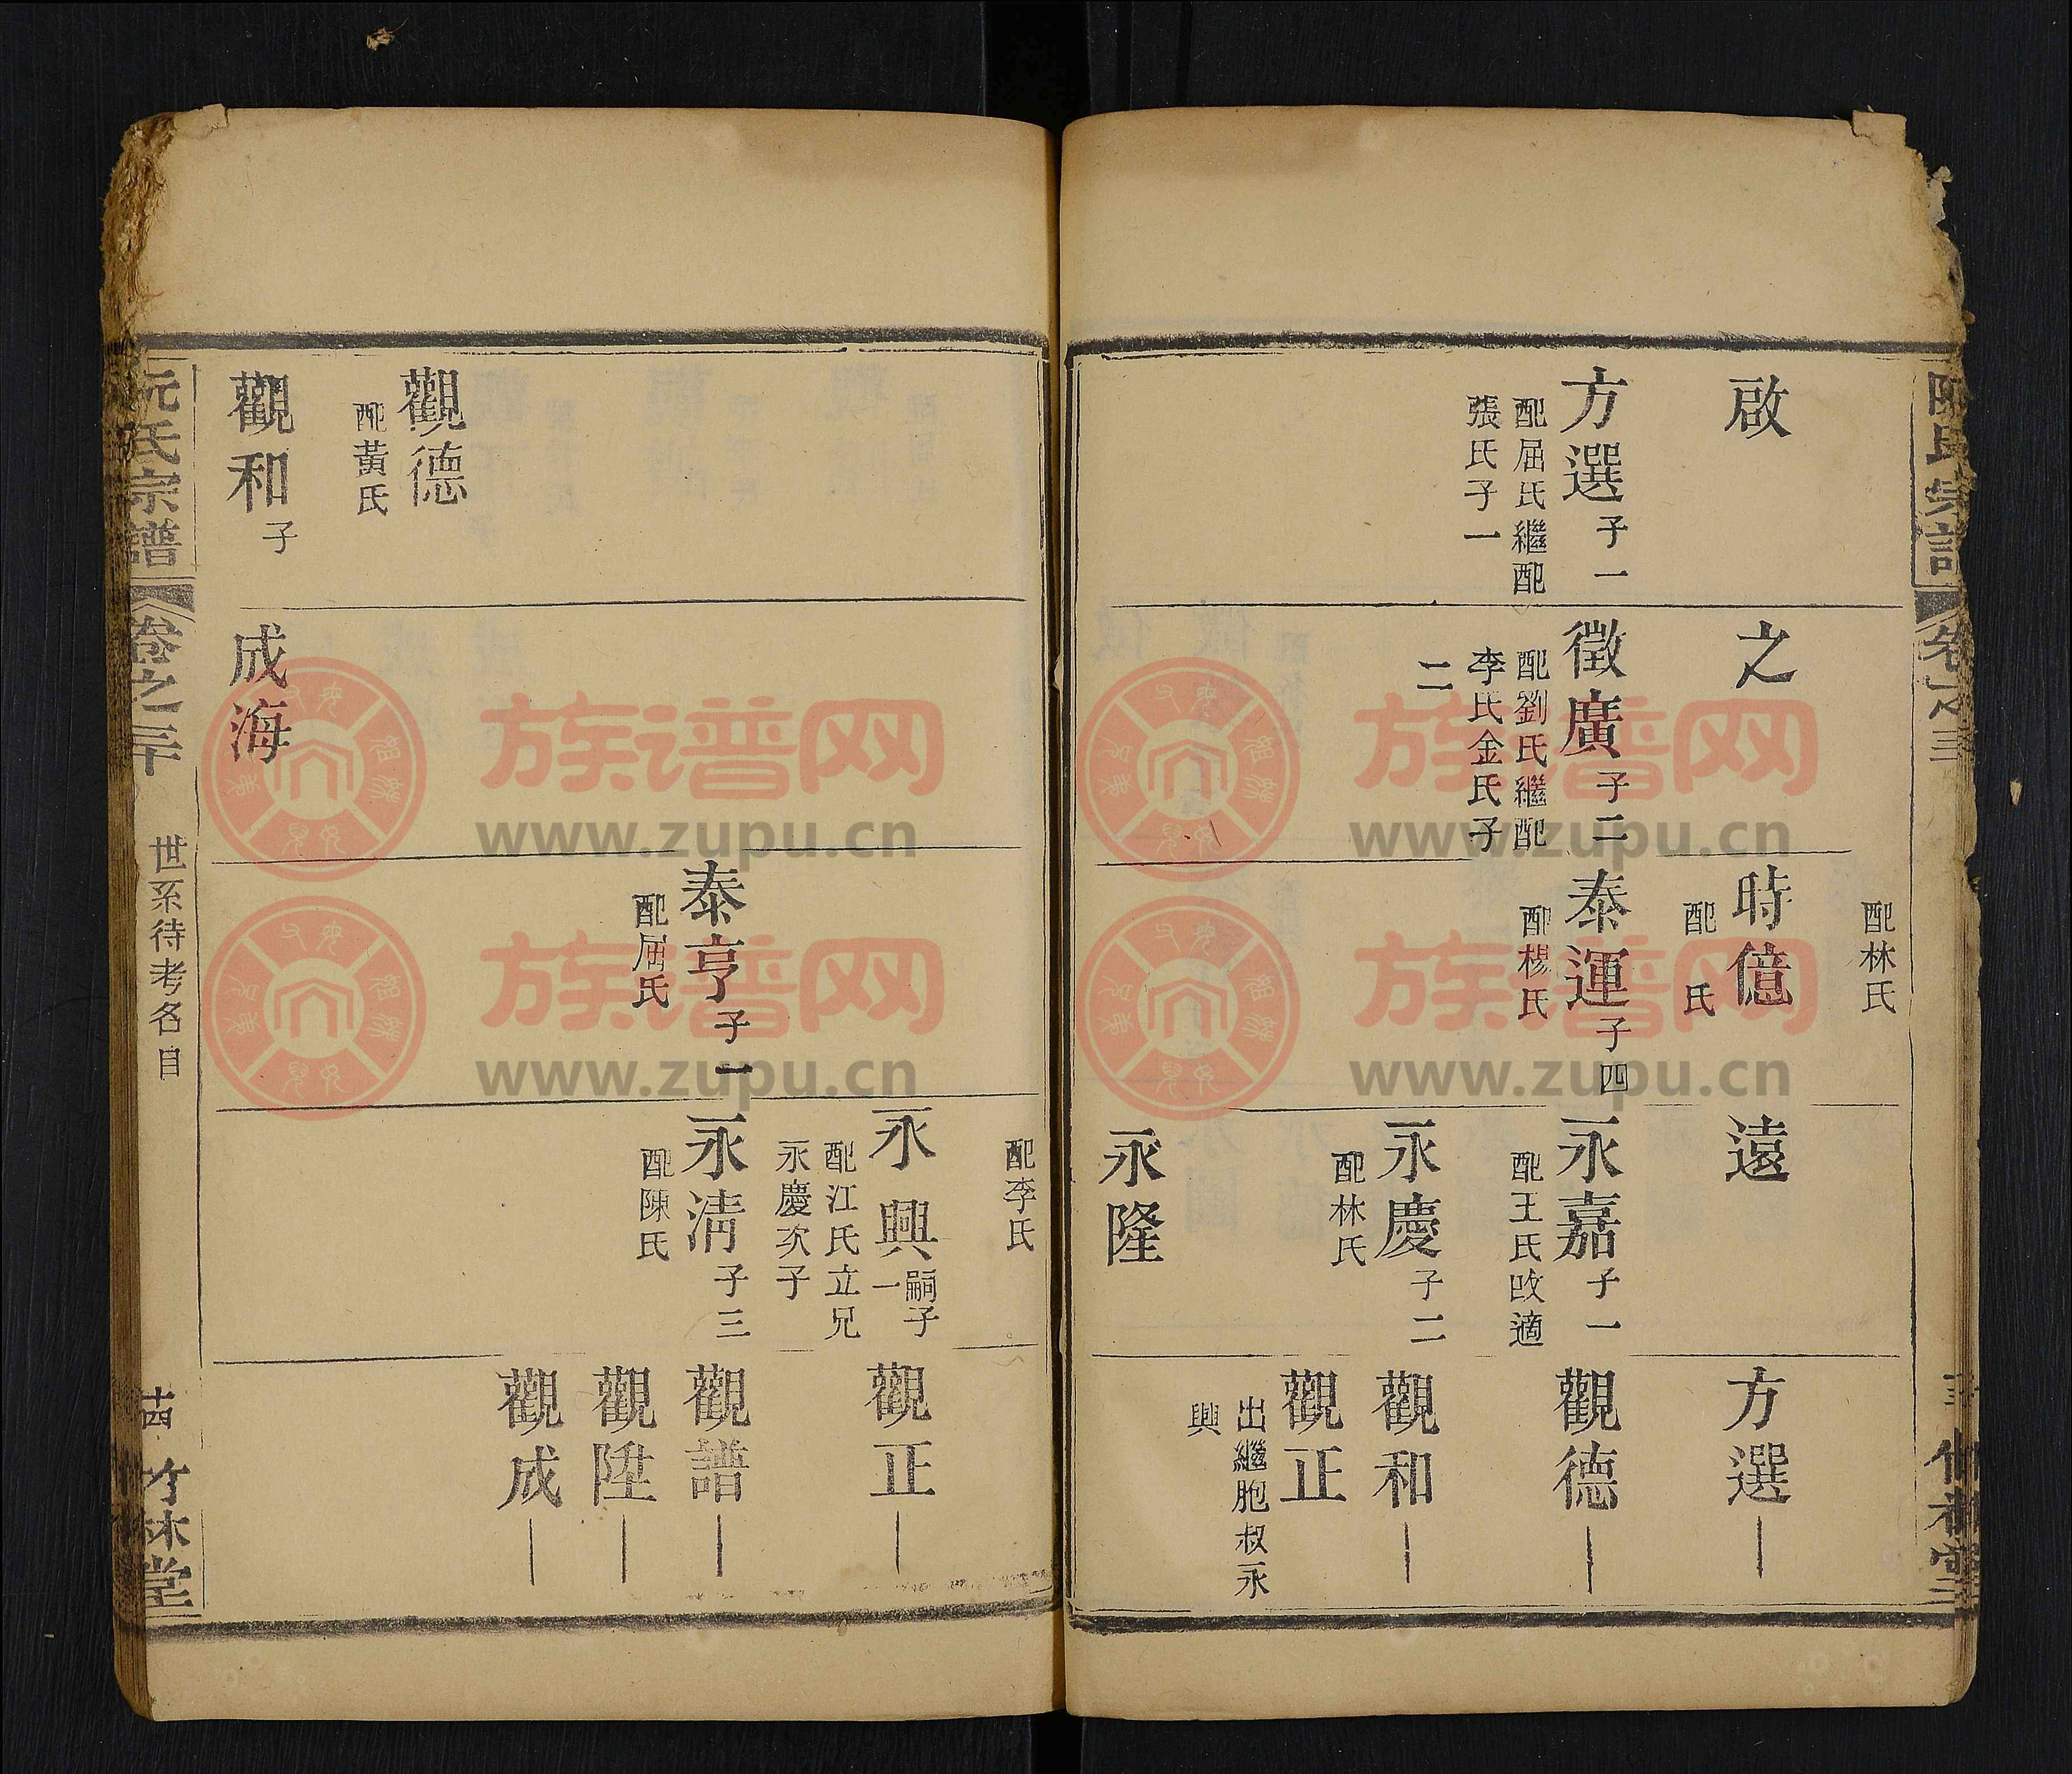 配林氏
啟
之
時億
配 氏
遠
方選
方選子一
配屈氏繼配
張氏子一
徵廣子二
配劉氏繼配
李氏金氏子
二
泰運子四
配楊氏
永嘉子一
配王氏改適
觀德
永慶子二
配林氏
觀和
觀正
出繼胞叔永
興
永隆
配李氏
永興嗣子一
配江氏立兄
永慶次子
觀正
泰亨子一
配屈氏
永清子三
配陳氏
觀譜
觀陞
觀成
觀德
配黃氏
觀和子
成海
阮氏宗譜
卷之三十
世系待考名目
十四
竹林堂
族谱网
www.zupu.cn
族谱网
www.zupu.cn
族谱网
www.zupu.cn
族谱网
www.zupu.cn